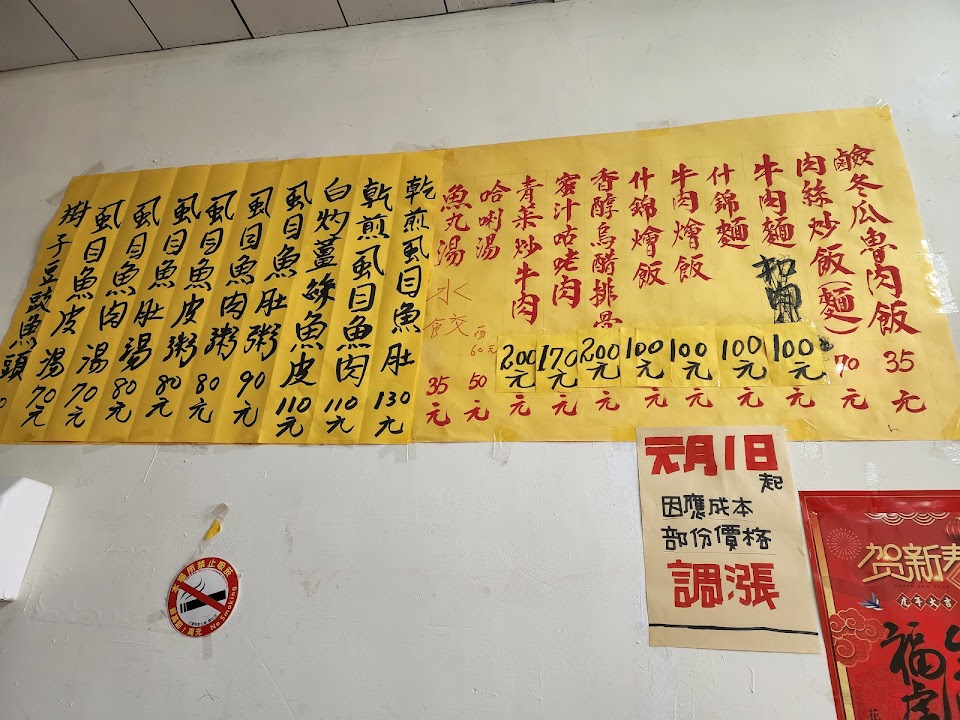 鹼冬瓜魯肉飯 35元
肉絲炒飯(麵) 70元
牛肉麵 100元 元
什錦麵 100元 元
牛肉燴飯 100元 元
什錦燴飯 100元 元
香醇烏醋排骨 200元 元
蜜汁咕咾肉 170元 元
青菜炒牛肉 200元 元
哈唎湯 50元
60元
魚丸湯 35元
水餃
乾煎虱目魚肚 130元
乾煎虱目魚肉 110元
白灼薑絲魚皮 110元
虱目魚肚粥 90元
虱目魚肉粥 80元
虱目魚皮粥 80元
虱目魚肚湯 80元
虱目魚肉湯 70元
虱目魚皮湯 70元
樹子豆豉魚頭
元月1日
起
因應成本
部份價格
調漲
本場所禁止吸菸
No Smoking
贺新春
虎年大吉
福虎